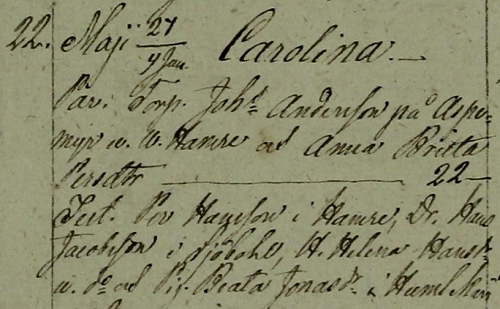 22. Maji 27/4 Jun. Carolina.—
Par. Torp. Johs Anderson på Aspe-
myr u. W. Hamre och Anna Britta
Persdtr — 22 —
Test. Per Hanson i Hamre, Dr. Hans
Jacobson i Sjöbohl, H. Helena Hansdr
u. do och Pig. Beata Jonasdr i